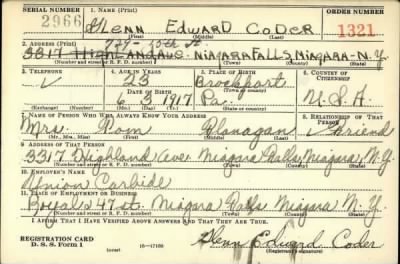 SERIAL NUMBER 1. NAME (Print) ORDER NUMBER
2966 Glenn Edward Coder 1321
(First) (Middle) (Last)
2. ADDRESS (Print)
3317 Highland Ave. Niagara Falls Niagara N.Y.
(Number and street or R. F. D. number) (Town) (County) (State)
3. TELEPHONE 4. AGE IN YEARS 5. PLACE OF BIRTH 6. COUNTRY OF CITIZENSHIP
23 Brockport
DATE OF BIRTH (Town or county)
6 3 1917 Pa. U.S.A.
(Exchange) (Number) (Mo.) (Day) (Yr.) (State or country)
7. NAME OF PERSON WHO WILL ALWAYS KNOW YOUR ADDRESS 8. RELATIONSHIP OF THAT PERSON
Mrs. Rom Flanagan Friend
(Mr., Mrs., Miss) (First) (Middle) (Last)
9. ADDRESS OF THAT PERSON
3317 Highland Ave Niagara Falls Niagara, N.Y.
(Number and street or R. F. D. number) (Town) (County) (State)
10. EMPLOYER'S NAME
Union Carbide
11. PLACE OF EMPLOYMENT OR BUSINESS
Royal & 47 st. Niagara Falls Niagara N.Y.
(Number and street or R. F. D. number) (Town) (County) (State)
I AFFIRM THAT I HAVE VERIFIED ABOVE ANSWERS AND THAT THEY ARE TRUE.
REGISTRATION CARD
D. S. S. FORM 1 (over) 16—17105 Glenn Edward Coder